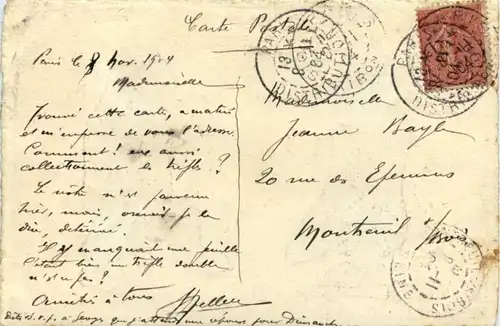 Carte Postale
Paris le 8 Nov. 1904
Mademoiselle
Trouvé cette carte, ce matin
et m'empresse de vous l'adresser.
Comment! vous aussi
collectionnez les trèfles ?
Le nôtre n'est parvenu
hier, mais, oserai-je le
dire, détérioré.
Il y manquait une feuille
C'était bien un trèfle double
n'est-ce pas ?
Amitiés à tous
Dites s.v.p. à que j'attends une réponse pour Dimanche
Mademoiselle
Jeanne Bayle
20 rue des
Montreuil s/Bois
PARIS
DISTRIBUTION
PARIS